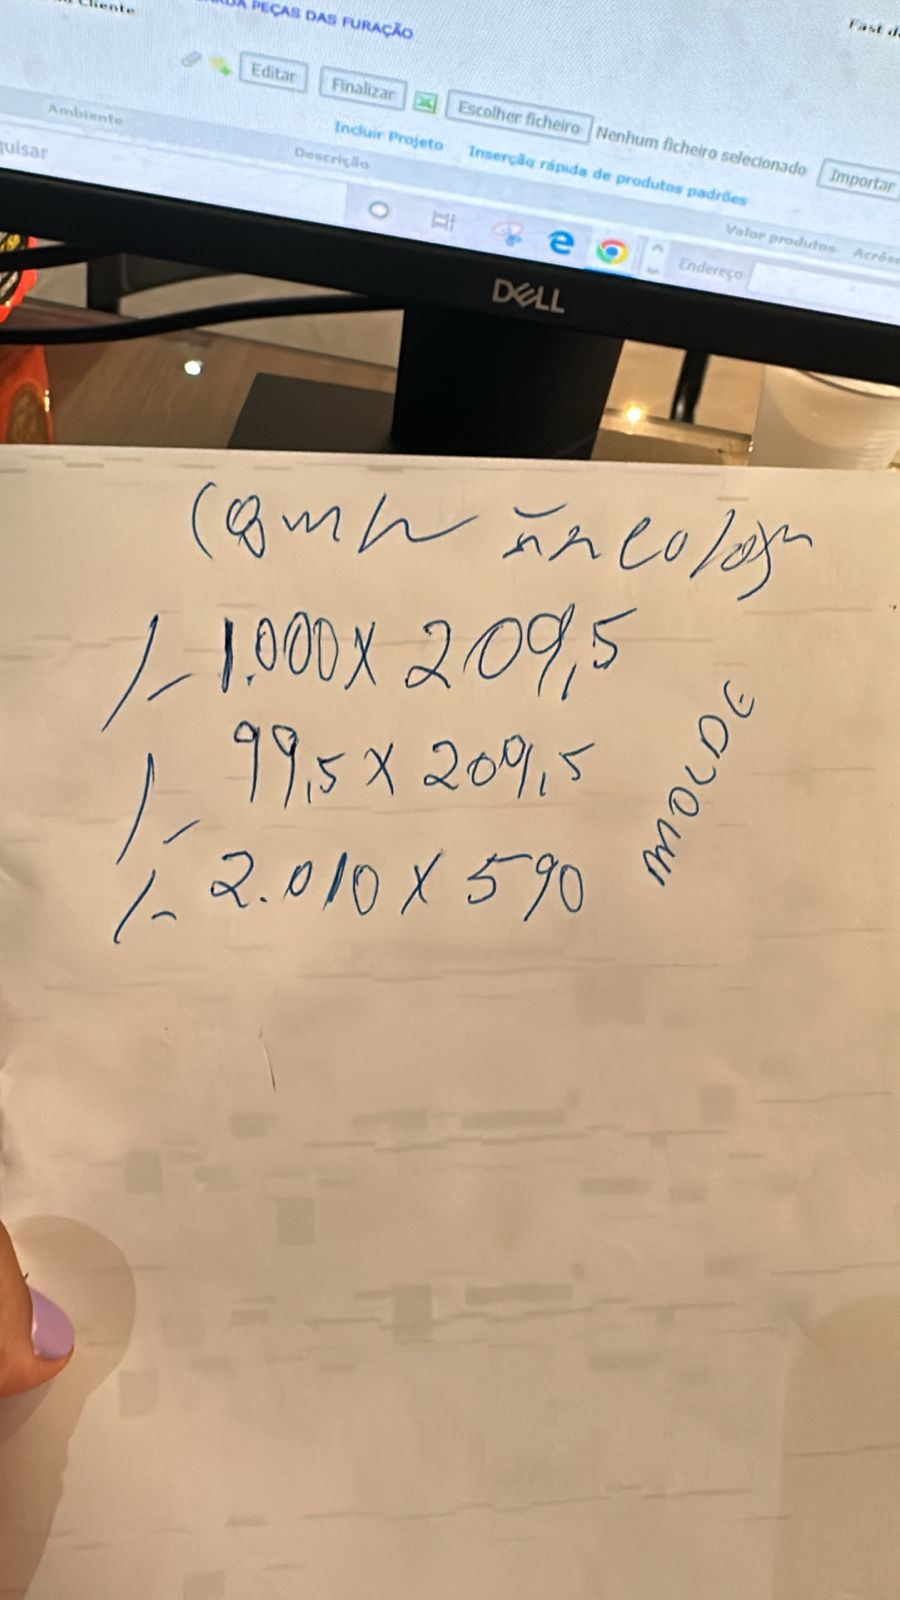 Cliente
PEÇAS DAS FURAÇÃO
Fast
Editar Finalizar Escolher ficheiro Nenhum ficheiro selecionado Importar
Ambiente Incluir Projeto Inserção rápida de produtos padrões
Descrição
Valor produtos
Endereço
DELL
incolor
1- 1.000 X 209,5
1- 99,5 X 209,5
1- 2.010 X 590
MOLDE